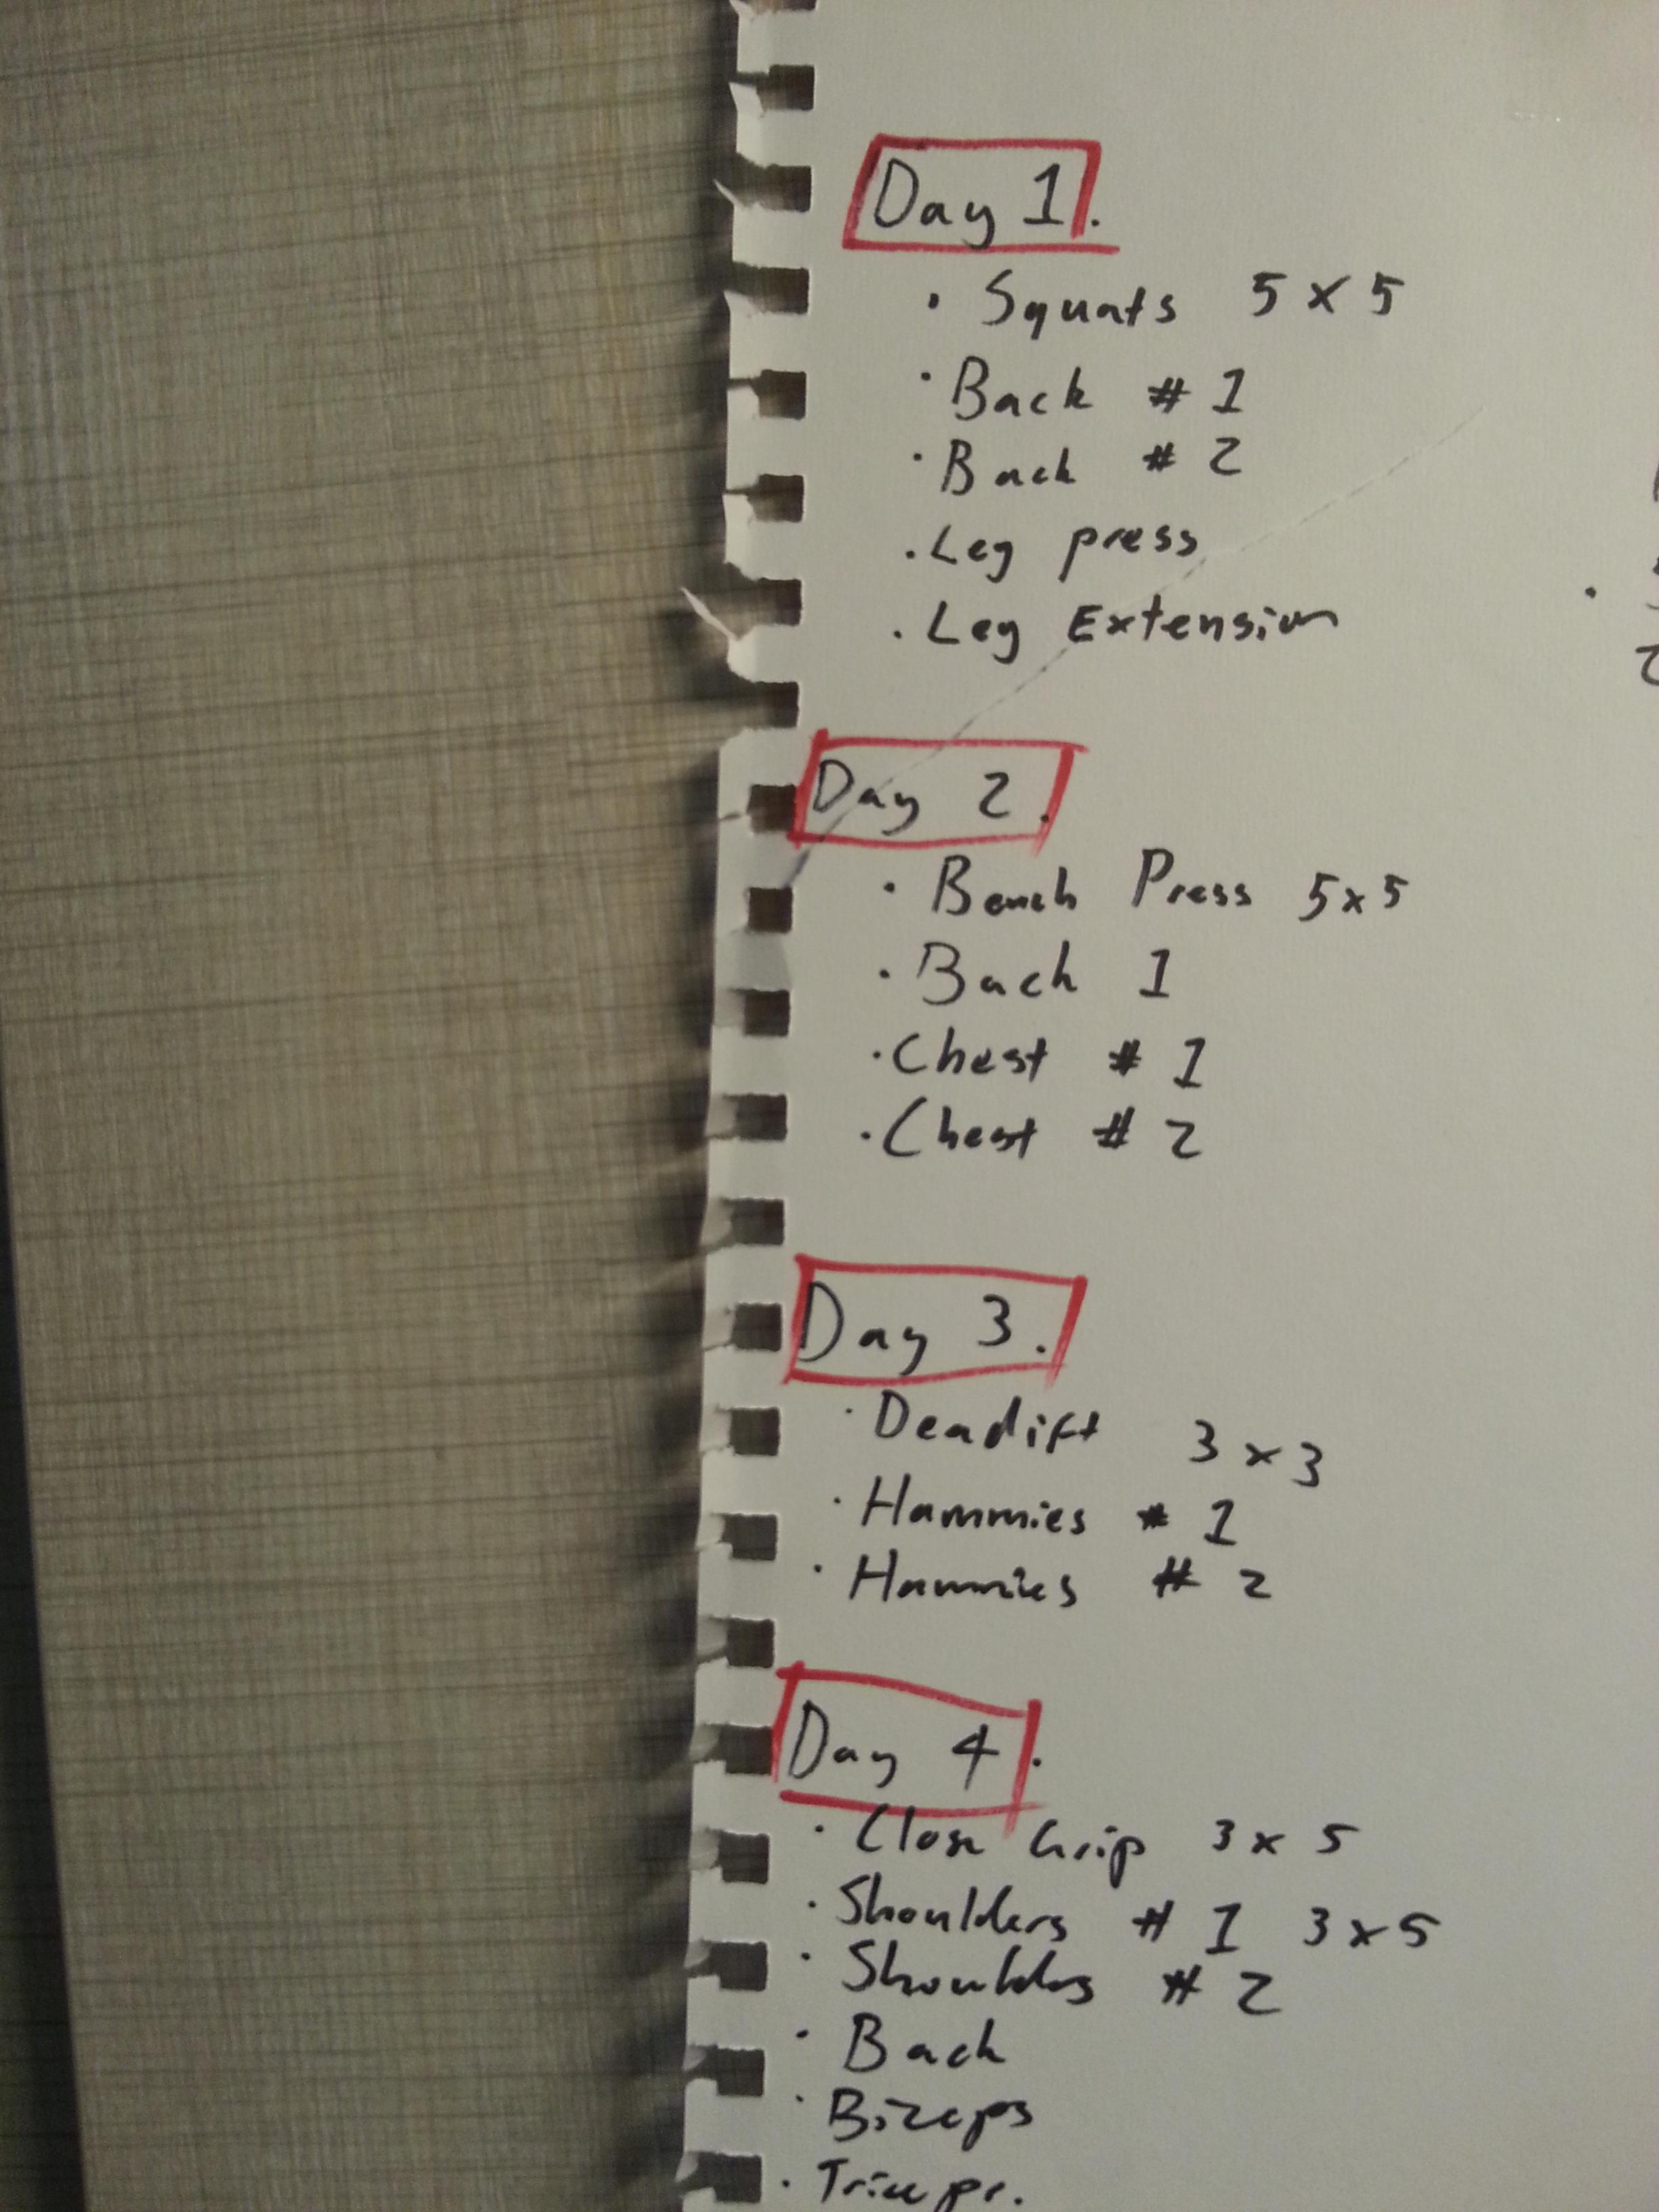 Day 1.
· Squats 5 x 5
· Back # 1
· Back # 2
· Leg press
· Leg Extension
Day 2.
· Bench Press 5x5
· Back 1
· Chest # 1
· Chest # 2
Day 3.
· Deadift 3 x 3
· Hammies # 1
· Hammies # 2
Day 4.
· Close Grip 3 x 5
· Shoulders # 1 3 x 5
· Shoulders # 2
· Back
· Biceps